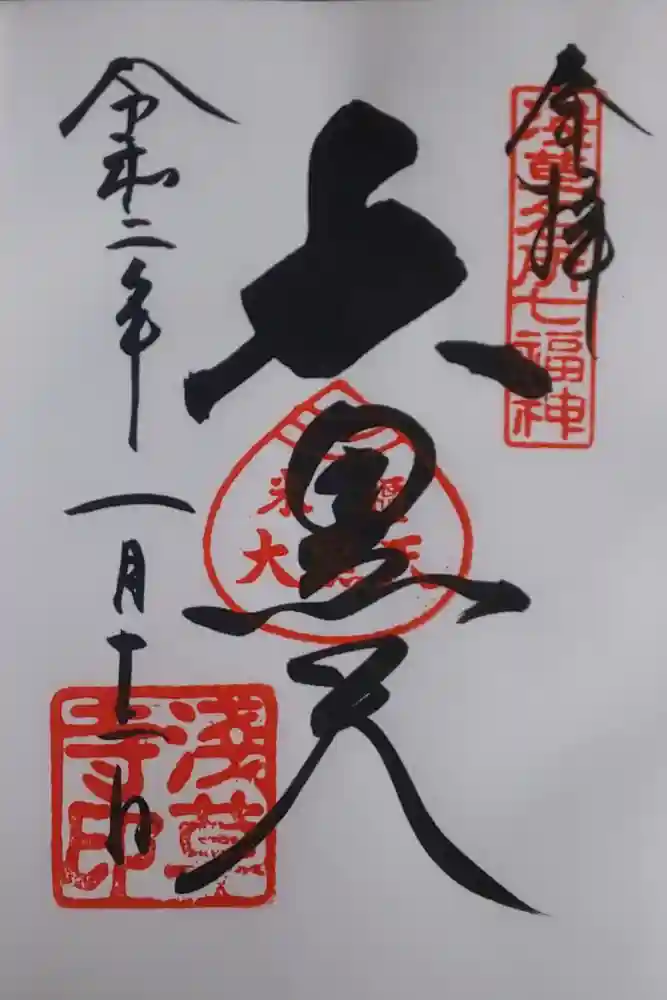 奉拝
浅草名所七福神
大黒天
米櫃
大黒天
令和二年一月十二日
浅草
寺印